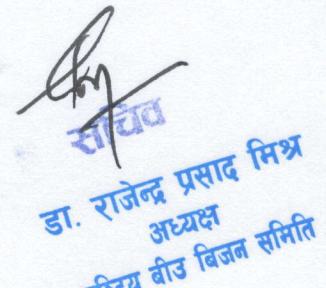 सचिव
डा. राजेन्द्र प्रसाद मिश्र
अध्यक्ष
बीउ बिजन समिति